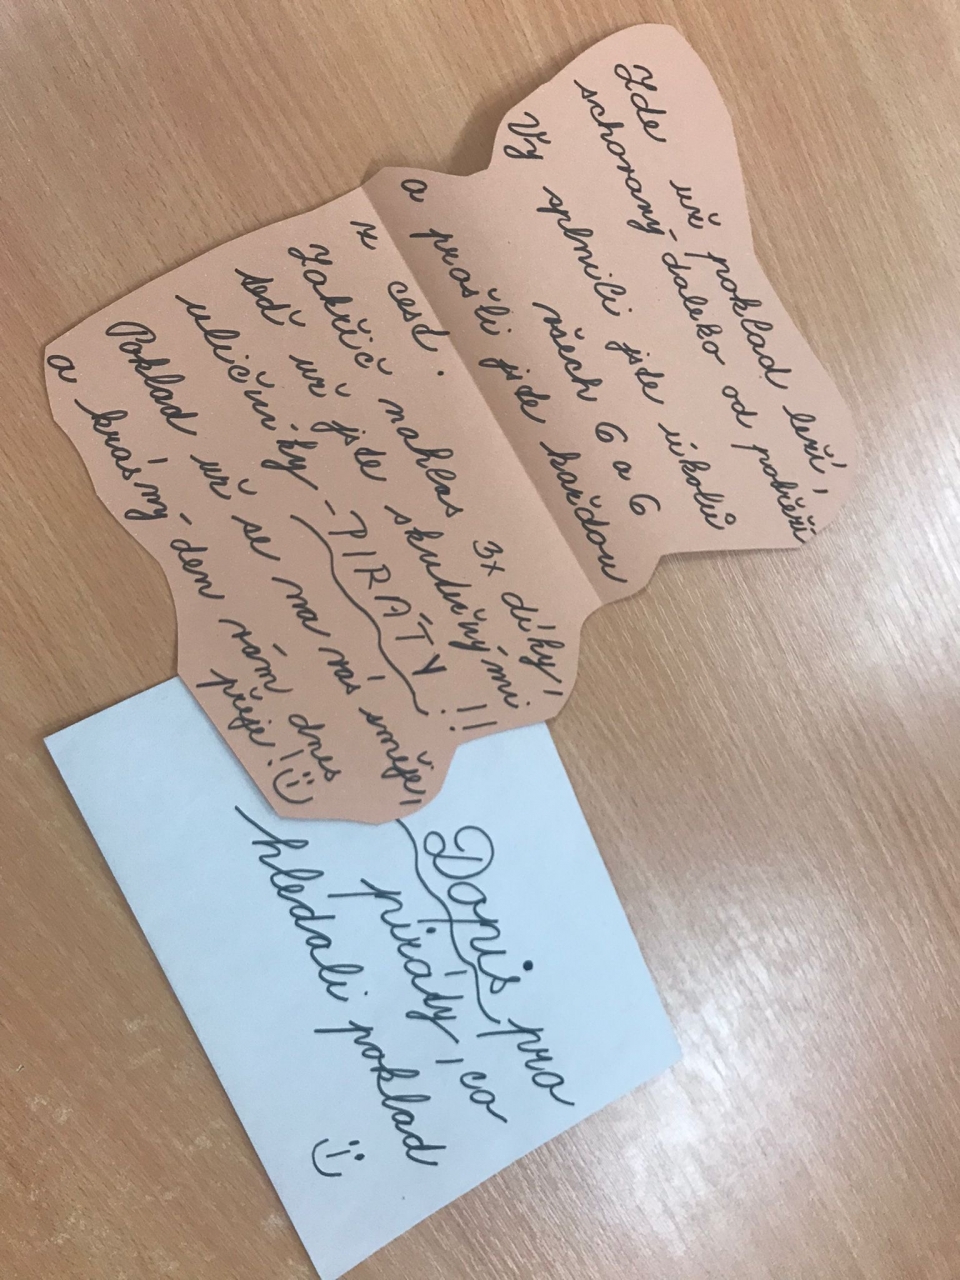 Zde už poklad leží,
schovaný - daleko od pobřeží
Vy splnili jste úkolů
všech 6 a 6
a prošli jste každou
z cest.
Zakřič nahlas 3x díky!
teď už jste skutečnými
uličníky - PIRÁTY!!
Poklad už se na vás směje,
a krásný den vám dnes
přeje! :)
Dopis pro
piráty, co
hledali poklad
:)